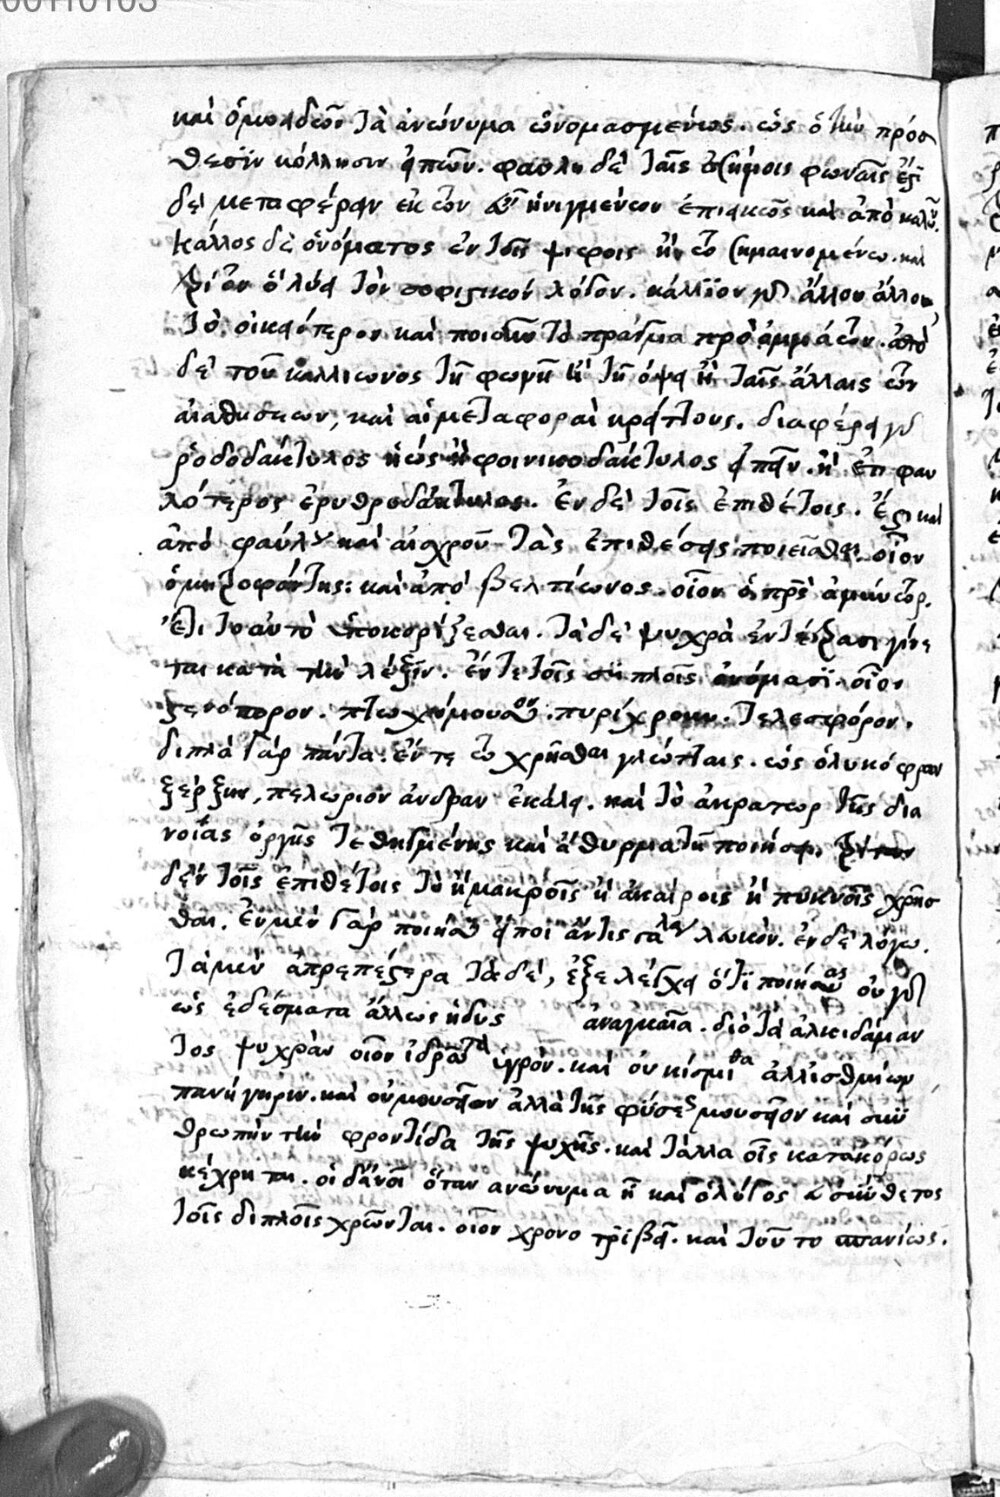 00110103
καὶ ὁμοειδῶν τὰ ἀνώνυμα ὠνομασμένως. ὡς ὁ τὴν πρόσ
θεσιν κόλλησιν εἰπών. φαύλη δὲ ταῖς ἀσήμοις φωναῖς ἔξι
δεῖ μεταφέρειν ἐκ τῶν εὖ ἠνιγμένων ἐπιεικῶς καὶ ἀπὸ καλῶν.
κάλλος δὲ ὀνόματος ἐν τοῖς ψόφοις ἢ ἐν τῷ σημαινομένω. καὶ
τρίτον ὃ λύει τὸν σοφιστικὸν λόγον. κάλλιον γὰρ ἄλλου ἄλλου
τὸ οἰκειότερον καὶ ποιοῦν τὸ πρᾶγμα πρὸ ὀμμάτων. ἀπὸ
δὲ τοῦ καλλίωνος τῇ φωνῇ ἢ τῇ ὄψει ἢ ταῖς ἄλλαις τῶν
αἰσθήσεων, καὶ αἱ μεταφοραὶ κρείττους. διαφέρει γὰρ
ῥοδοδάκτυλος ἠὼς ἢ φοινικοδάκτυλος εἰπεῖν. ἢ ἐπὶ φαυ
λότερος ἐρυθροδάκτυλος. ἐν δὲ τοῖς ἐπιθέτοις. ἔστι καὶ
ἀπὸ φαύλου καὶ αἰσχροῦ τὰς ἐπιθέσεις ποιεῖσθαι. οἷον
ὁ μητροφόντης: καὶ ἀπὸ βελτίωνος. οἷον ὁ πατρὸς ἀμύντωρ.
ἔτι τὸ αὐτὸ ὑποκορίζεσθαι. τὰ δὲ ψυχρὰ ἐν τέτρασι γίνε
ται κατὰ τὴν λέξιν. ἔν τε τοῖς διπλοῖς ὀνόμασι. οἷον
στενόπορον. πτωχόμουσον. πυρίχρουν. τελεσφόρον.
διπλᾶ γὰρ πάντα. ἔν τε τῷ χρῆσθαι γλώτταις. ὡς ὁ λυκόφρων
ξέρξην, πελώριον ἄνδραν ἐκάλει. καὶ τὸ ἀκράτωρ τῆς δια
νοίας ὀργῆς τεθηγμένης καὶ ἄθυρμα τῇ ποιήσει. τρίτον
δ' ἐν τοῖς ἐπιθέτοις τὸ ἢ μακροῖς ἢ ἀκαίροις ἢ πυκνοῖς χρῆσ
θαι. ἐν μὲν γὰρ ποιήσει εἴποι ἄν τις γάλα λευκόν. ἐν δὲ λόγω.
τὰ μὲν ἀπρεπέστερα τὰ δὲ, ἐξελέγχει ὅτι ποιήσεως οὐ γὰρ
ὡς ἐδέσματα ἄλλως ἡδυς ἀναγκαῖα. διὸ τὰ ἀλκιδάμαν
τος ψυχρὰν οἷον ἱδρῶτα ὑγρόν. καὶ οὐκ ἴσμιθα ἀλλ' ἰσθμίων
πανήγυριν. καὶ οὐ μουσεῖον ἀλλὰ τῆς φύσεως μουσεῖον καὶ σκυ
θρωπὴν τὴν φροντίδα τῆς ψυχῆς. καὶ τἆλλα οἷς κατακόρως
κέχρηται. οἱ δ' ἄνοι ὅταν ἀνώνυμα ἢ καὶ ὁ λόγος εὐσύνθετος
τοῖς διπλοῖς χρῶνται. οἷον χρονοτριβεῖ. καὶ τοῦτο σπανίως.